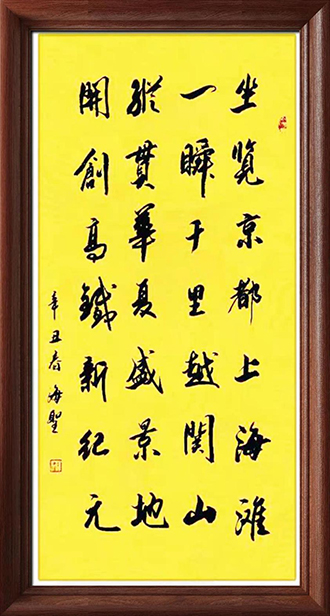 坐览京都上海滩
一瞬千里越関山
纵贯華夏盛景地
開創高鐵新纪元
辛丑春海聖